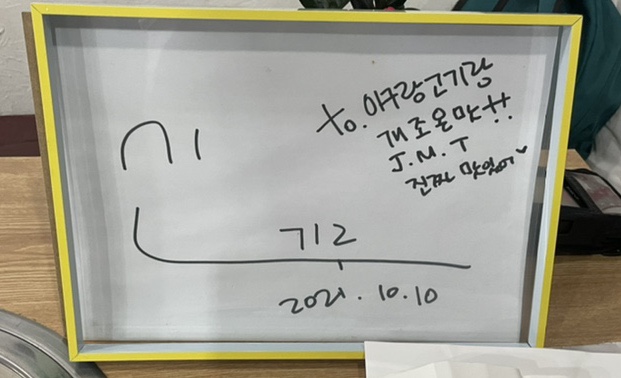 to. 아구랑고기랑
개조은맛!!
J.M.T
진짜 맛있어♥
2021. 10.10